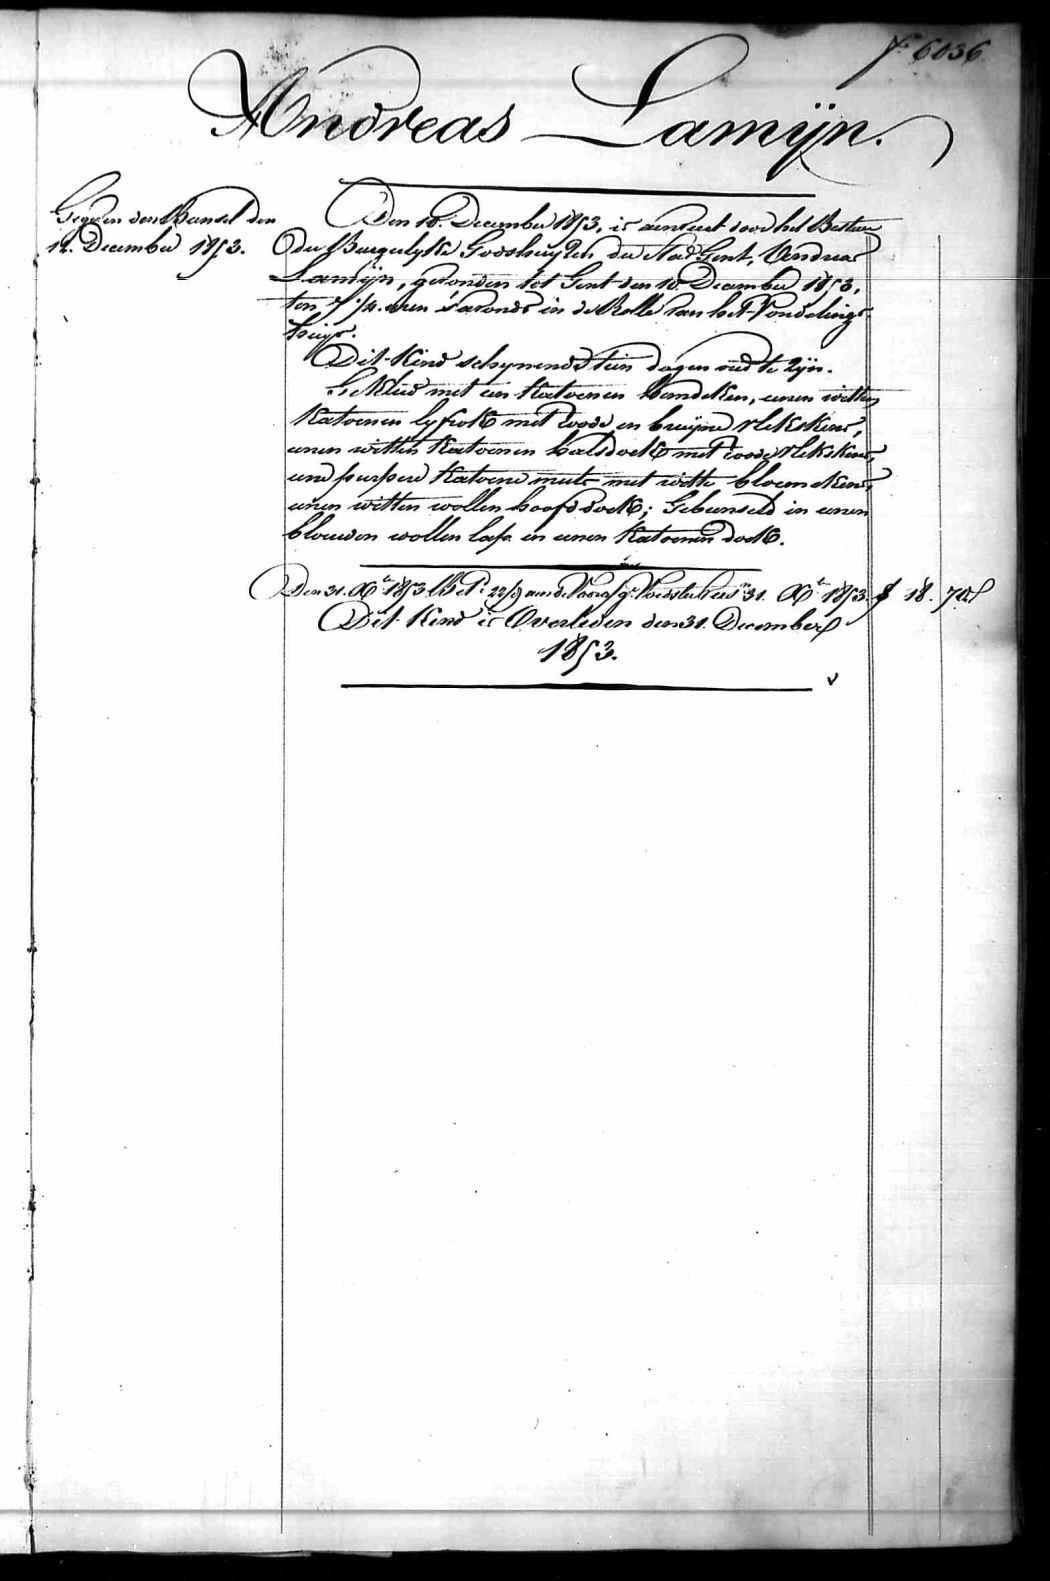 fo 6036
Andreas Lamyn.
Gegeven den Bunsel den
12. December 1853.
Den 10. December 1853, is aenveert door het Bestuur
der Burgerlyke Godshuyzen der Stad Gent, Andreas
Lamyn, gevonden tot Gent den 10. December 1853,
ten 7 1/4. uren 's avonds in de Rolle van het Vondelings-
huys.
Dit Kind schynende tien dagen oud te zyn.
Gekleed met een Katoenen hemdeken, eenen witten
Katoenen lyfrok met roode en bruyne vlekskens,
eenen witten Katoenen halsdoek met roode vlekskens,
eene purpere Katoene muts met witte bloemekens,
eenen witten wollen hoofddoek; Gebunseld in eenen
blauwen wollen lap en eenen Katoenen doek.
Den 31. Xber 1853 Bet. 22/9 aen de Voorz. 31. Xber 1853. f 18. 74
Dit Kind is Overleden den 31. December
1853.